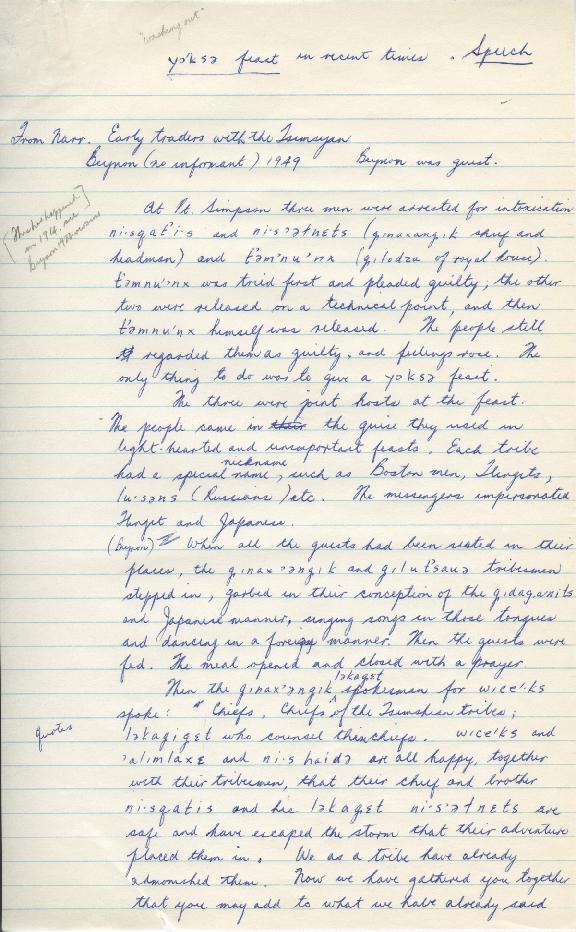 "washing out"
yɔ'ksə feast in recent times. Speech
From Narr. Early traders with the Tsimsyan
Beynon (no informant) 1949 Beynon was guest.
in 1914. see
At Pt. Simpson three men were arrested for intoxication
ni·sgat'i·s and ni·s'ətnɛts (ginaxangik chief and
headman) and t'əm'nu'nx (gilodza of royal house).
t'əmnu'nx was tried first and pleaded guilty; the other
two were released on a technical point, and then
t'əmnu'nx himself was released. The people still
regarded them as guilty, and feelings rose. The
only thing to do was to give a yɔksə feast.
The three were joint hosts at the feast.
The people came in the guise they used in
light-hearted and unimportant feasts. Each tribe
nickname
had a special name, such as Boston men, Tlingits,
lu·səns (Russians) etc. The messengers impersonated
Tlingit and Japanese.
(Beynon) When all the guests had been seated in their
places, the ginax'angik and gilut'sauə tribesmen
stepped in, garbed in their conception of the gidaganits
and Japanese manner, singing songs in those tongues
and dancing in a foreign manner. Then the guests were
fed. The meal opened and closed with a prayer.
ləkagət
Then the ginax'əngik spokesman for wice'ks
spoke: "Chiefs, Chiefs of the Tsimshian tribes;
quotes
ləkagigət who counsel their chiefs. wice'ks and
'alimlaxɛ and ni·s haidə are all happy, together
with their tribesmen, that their chief and brother
ni·sgatis and his ləkagət ni·s'ətnɛts are
safe and have escaped the storm that their adventure
placed them in. We as a tribe have already
admonished them. Now we have gathered you together
that you may add to what we have already said